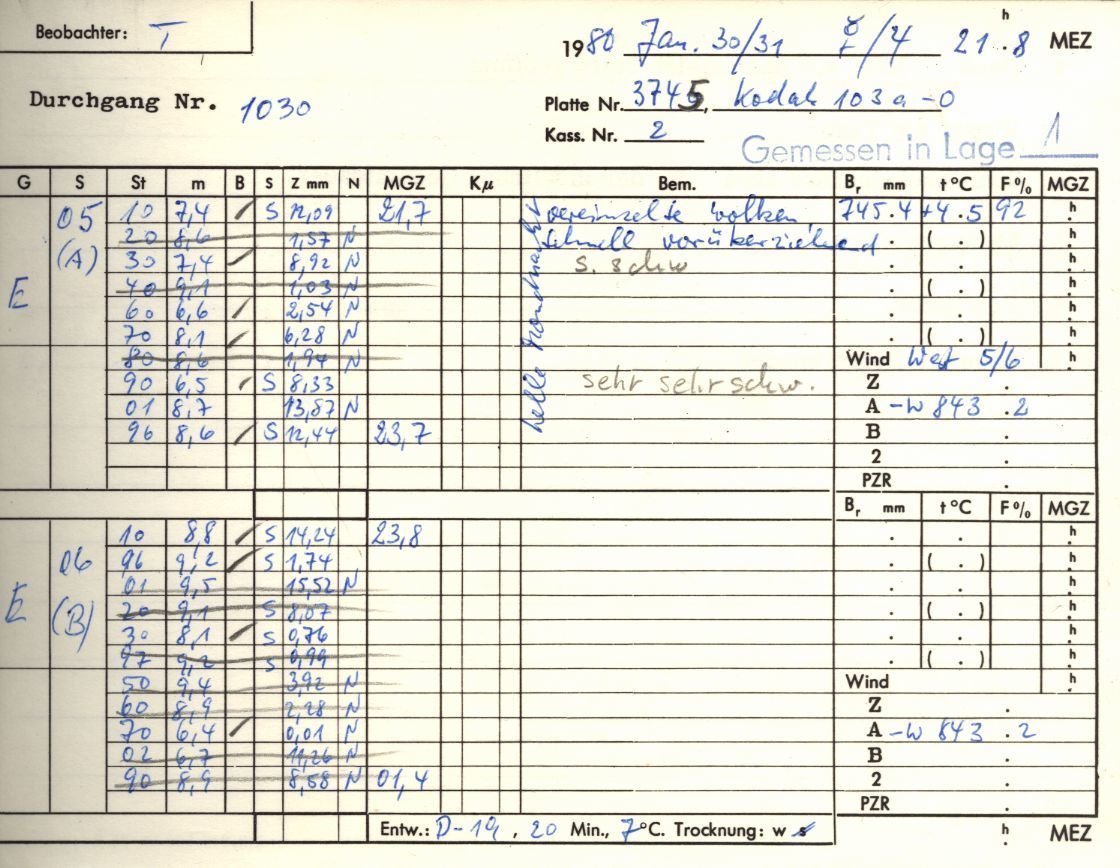 Beobachter: T
1980 Jan. 30/31 ☿/♃ 21.8 h MEZ
Durchgang Nr. 1030
Platte Nr. 3745, Kodak 103a-O
Kass. Nr. 2
Gemessen in Lage 1
G S St m B S Z mm N MGZ Kμ Bem. Br mm t°C F% MGZ
E 05 (A)
10 7,4 / S 12,09 21,7 vereinzelte Wolken 745.4 +4.5 92 h
20 8,6 1,57 N schnell vorüberziehend . ( . ) h
30 7,4 / 8,92 N s. schw . . h
40 9,1 1,03 N . ( . ) h
60 6,6 / 2,54 N . . h
70 8,1 / 6,28 N . ( . ) h
80 8,6 1,94 N Wind West 5/6 h
90 6,5 / S 8,33 sehr sehr schw. Z .
01 8,7 13,87 N A -W 843 .2
96 8,6 / S 12,44 23,7 B .
2
PZR .
helle
Br mm t°C F% MGZ
E 06 (B)
10 8,8 / S 14,24 23,8 . . h
96 9,2 / S 1,74 . ( . ) h
01 9,5 15,52 N . . h
20 9,1 S 8,07 . ( . ) h
30 8,1 / S 0,76 . . h
97 9,2 S 0,99 . ( . ) h
50 9,4 3,92 N Wind h
60 8,9 2,28 N Z .
70 6,4 / 0,01 N A -W 843 .2
02 6,7 11,26 N B .
90 8,9 8,58 N 01,4 2 .
PZR .
Entw.: D-19, 20 Min., 7°C. Trocknung: w s h MEZ